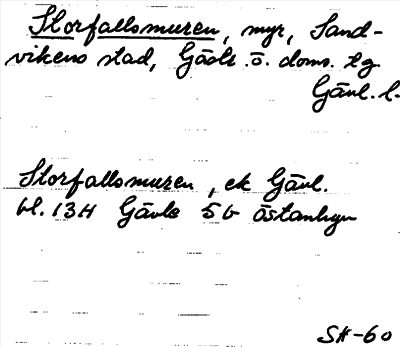 Storfallsmuren, myr, Sand-
vikens stad, Gästr. ö. doms. tg
Gävl. l.
Storfallsmuren, ek Gävl.
bl. 13H Gävle 5b Åstanbyn
SH-60